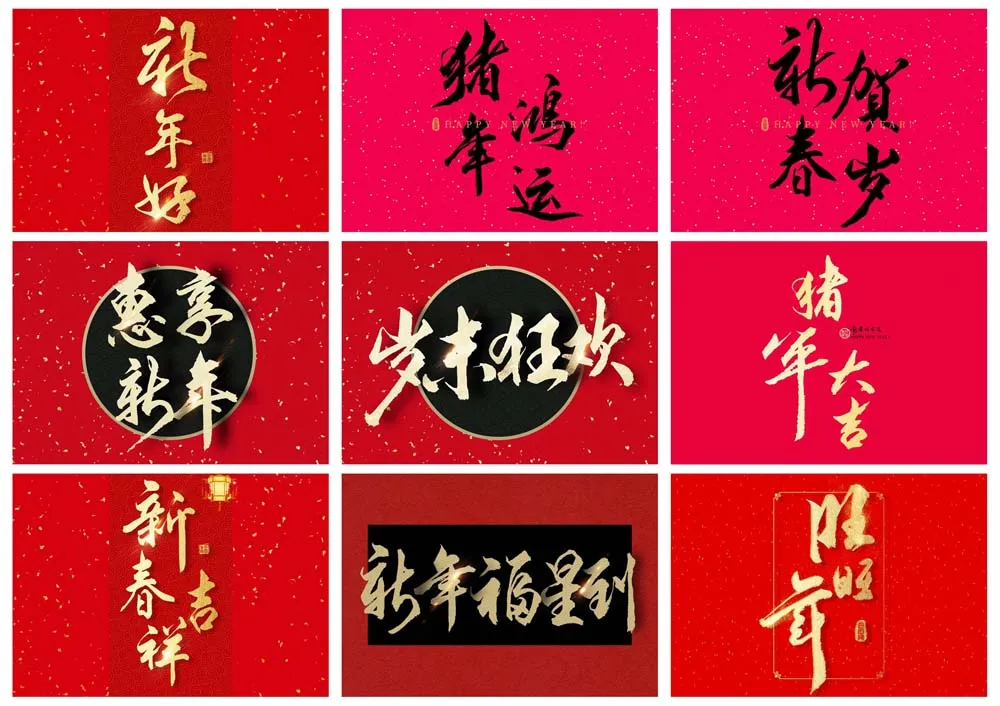 新年好
猪年
鸿运
HAPPY NEW YEAR!
新春
贺岁
HAPPY NEW YEAR!
惠享
新年
岁末狂欢
猪年
大吉
新春
吉祥
新年福星到
旺旺年